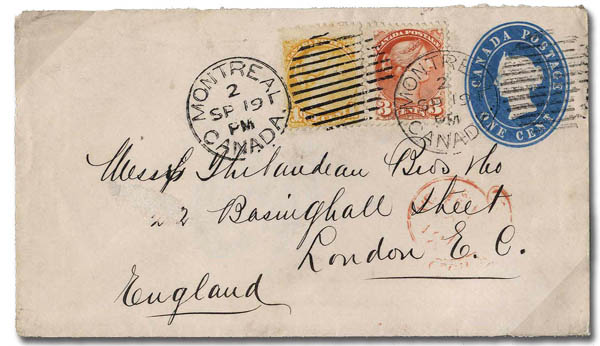 CANADA POSTAGE
3 CENTS 3
CANADA POSTAGE
ONE CENT
MONTREAL
2
SP 19
PM
CANADA
MONTREAL
2
SP 19
PM
CANADA
Messrs Bros & Co
22 Basinghall Street
London E. C.
England